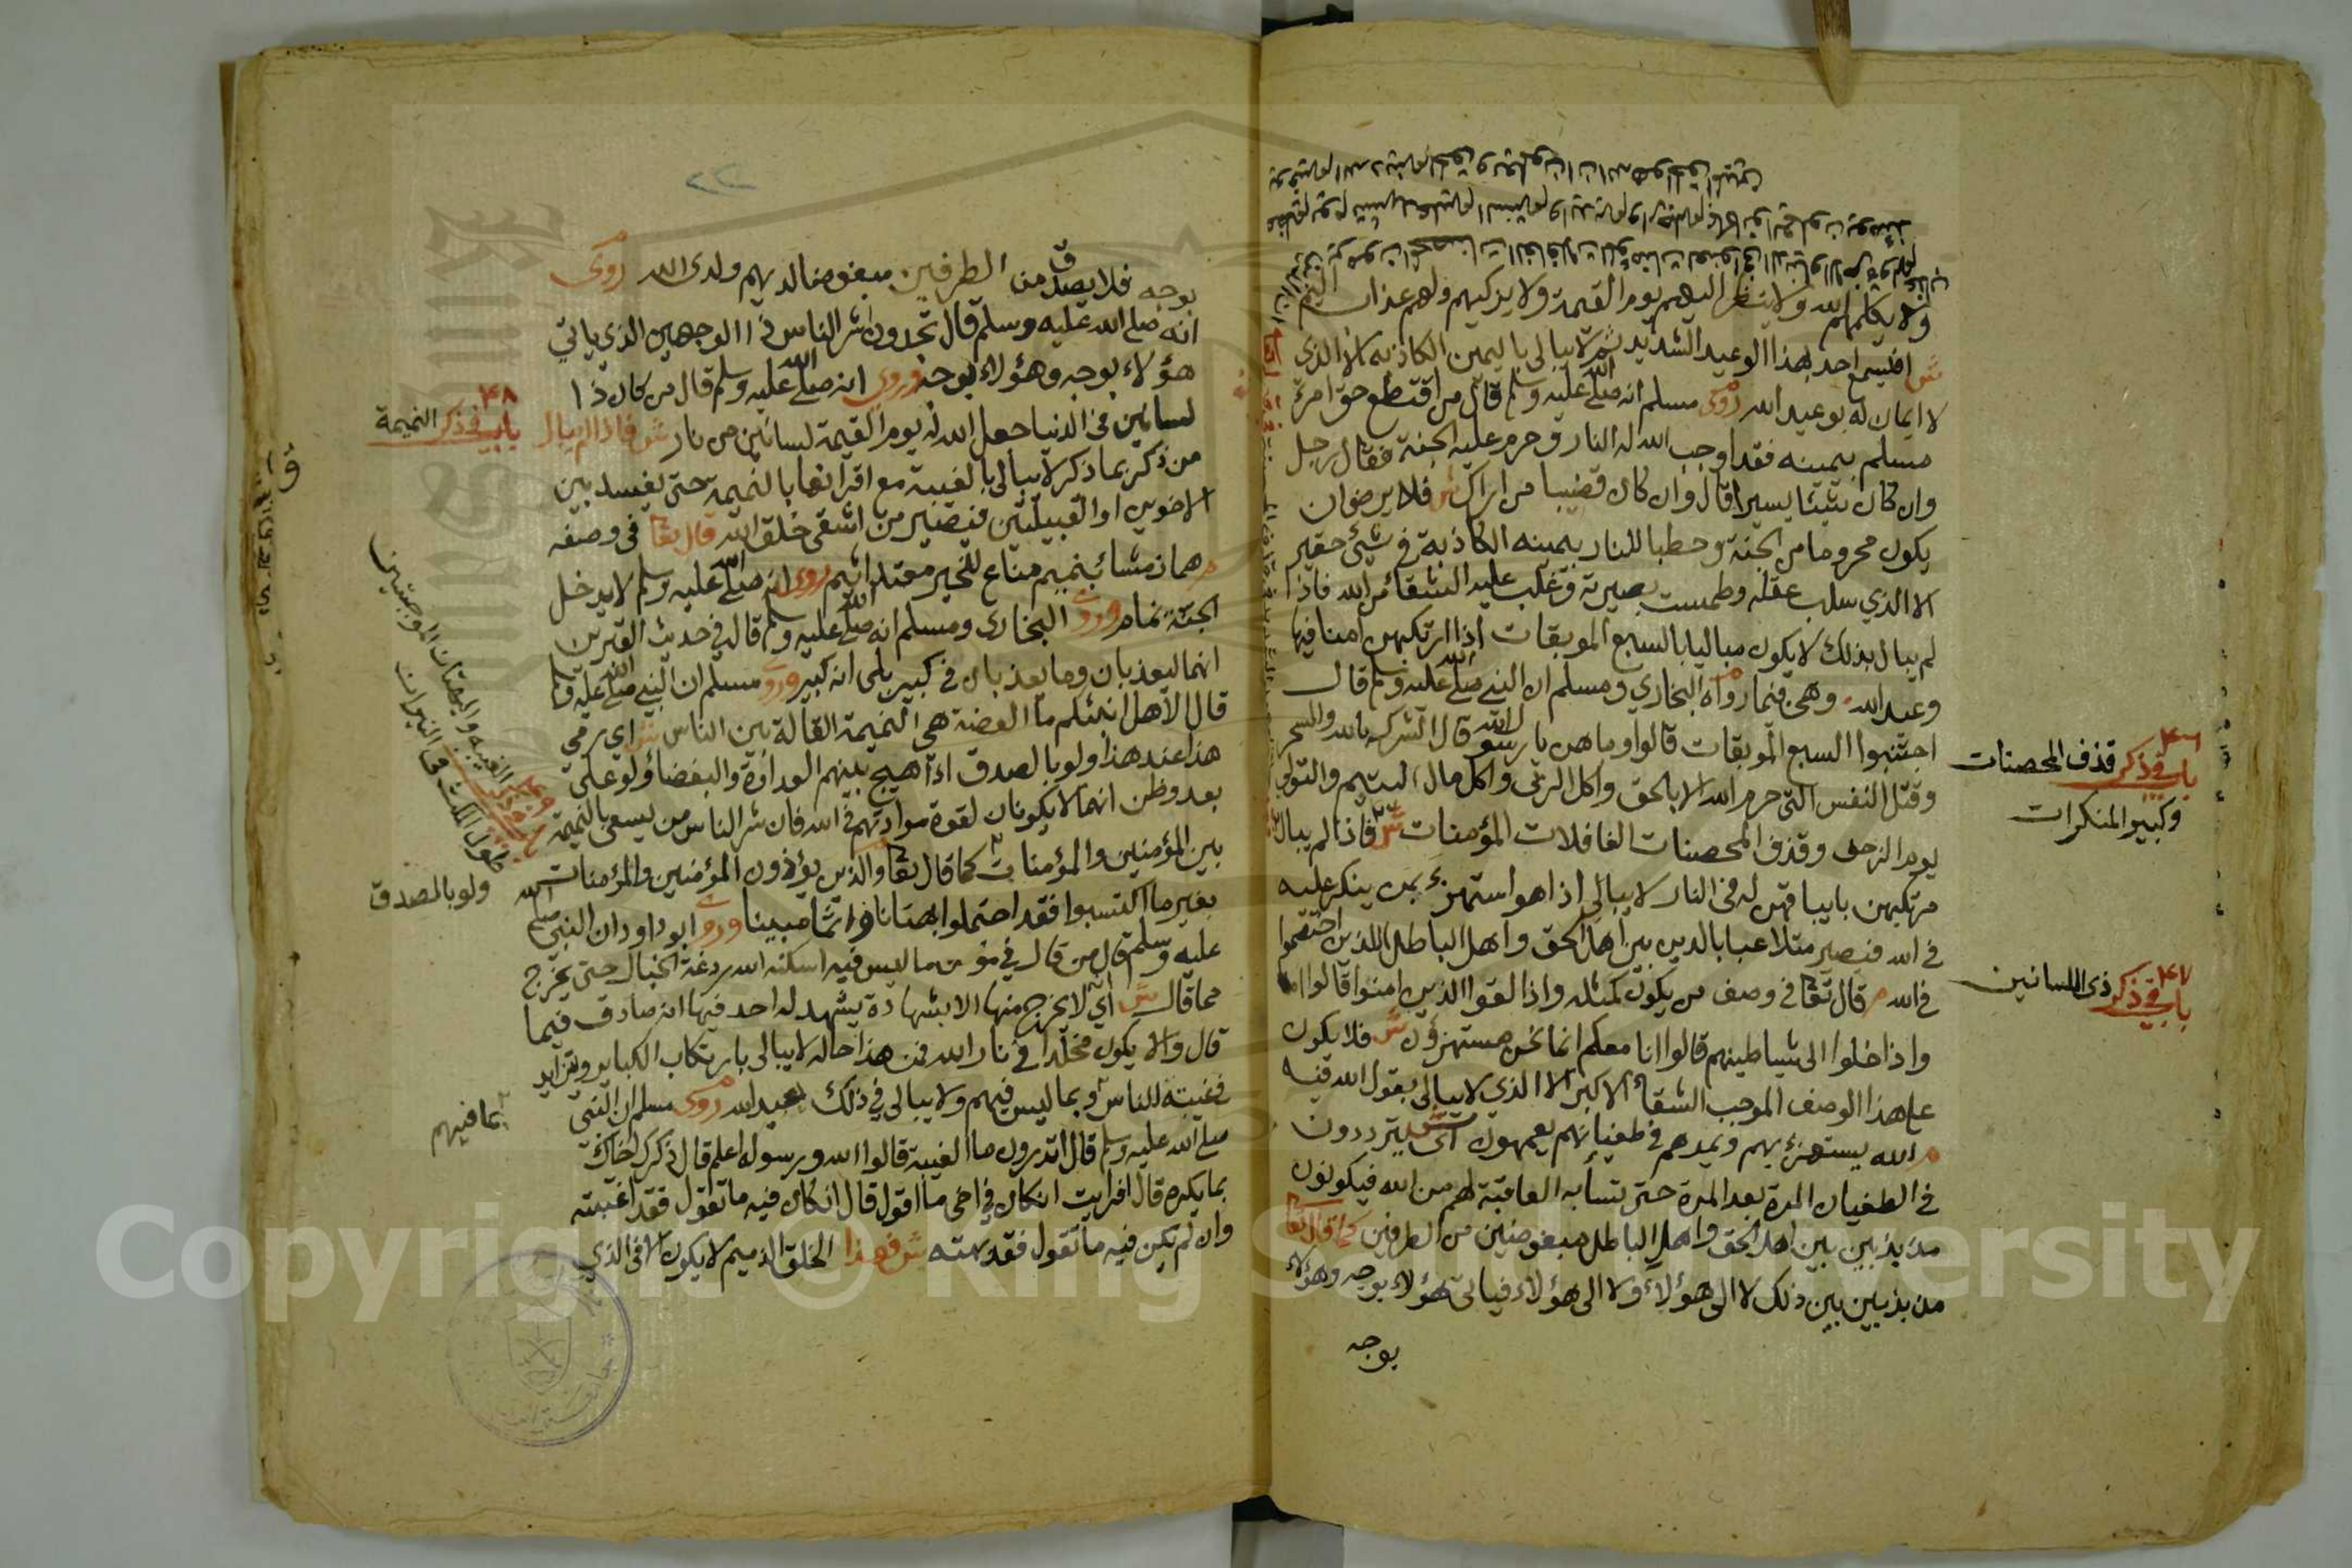 ولا يكلمهم الله ولا ينظر اليهم يوم القيمة ولا يزكيهم ولهم عذاب اليم
ش افليسمع احد لهذا الوعيد الشديد ثم لا يبالي باليمين الكاذبه الا الذي
لا ايمان له بوعيد الله روى مسلم انه صلى الله عليه وسلم قال من اقتطع حق امرئ
مسلم بيمينه فقد اوجب الله له النار وحرم عليه الجنة فقال رجل
وان كان شيئا يسيرا قال وان كان قضيبا من اراك ش فلا يرضوان
يكون محروما من الجنة وحطبا للنار بيمينه الكاذبة في شيئ حقير
الا الذي سلب عقله وطمست بصيرته وغلب عليه الشقا من الله فاذا
لم يبال بذلك لا يكون مباليا بالسبع الموبقات اذا ارتكبهن امنا فيها
وعيد الله وهي فيما رواه البخاري ومسلم ان النبي صلى الله عليه وسلم قال
اجتنبوا السبع الموبقات قالوا وما هن يا رسول الله قال الشرك بالله والسحر
وقتل النفس التي حرم الله الا بالحق واكل الربى واكل مال اليتيم والتولي
يوم الزحف وقذف المحصنات الغافلات المؤمنات ش فاذا لم يبال
مرتكبهن بايباقهن له في النار لا يبالي اذا هو استهزئ بمن ينكر عليه
في الله فيصير متلاعبا بالدين بين اهل الحق واهل الباطل اللذين اختصموا
في الله م قال تعا في وصف من يكون كمثله واذا لقوا الذين امنوا قالوا امنا
واذا خلوا الى شياطينهم قالوا انا معكم انما نحن مستهزؤن ش فلا يكون
على هذا الوصف الموجب الشقاء الاكبر الا الذي لا يبالي بقول الله فيه
م الله يستهزئ بهم ويمدهم في طغيانهم يعمهون ش اي يترددون
في الطغيان المرة بعد المرة حتى العاقبة لهم من الله فيكونون
مذبذبين بين اهل الحق واهل الباطل مبغوضين من الطرفين كما قال تعا
مذبذبين بين ذلك لا الى هؤلاء ولا الى هؤلاء فياتي هؤلاء بوجه وهؤلاء
بوجه
٤٦
باب في ذكر قذف المحصنات
وكبير المنكرات
٤٧
باب في ذكر ذي اللسانين
بوجه فلا يصدق من الطرفين مبغوضا لديهم ولدى الله روى
انه صلى الله عليه وسلم قال تجدون شر الناس ذا الوجهين الذي ياتي
هؤلاء بوجه وهؤلاء بوجه وروى انه صلى الله عليه وسلم قال من كان ذا
لسانين في الدنيا جعل الله له يوم القيمة لسانين من نار ش فاذا لم يبال
من ذكر بما ذكر لا يبالي بالغيبة مع اقترانها بالنميمة حتى يفسد بين
الاخوين او القبيلتين فيصير من اشقى خلق الله قال تعا في وصفه
م هماز مشاء بنميم مناع للخير معتد اثيم روى انه صلى الله عليه وسلم لا يدخل
الجنة نمام وروى البخاري ومسلم انه صلى الله عليه وسلم قال في حديث القبرين
انهما ليعذبان وما يعذبان في كبير بلى انه كبير وروى مسلم ان النبي صلى الله عليه وسلم
قال الا هل انبئكم ما العضة هي النميمة القالة بين الناس ش اي يرمي
هذا عند هذا ولو بالصدق اذا هيج بينهم العداوة والبغضاء ولو على
بعد وظن انهما لا يكونان لقوة موادتهم في الله فان شر الناس من يسعى بالنميمة
بين المؤمنين والمؤمنات كما قال تعا والذين يؤذون المؤمنين والمؤمنات
بغير ما اكتسبوا فقد احتملوا بهتانا واثما مبينا وروى ابو داود ان النبي صلى الله
عليه وسلم قال من قال في مؤمن ما ليس فيه اسكنه الله ردغة الخبال حتى يخرج
مما قال ش اي لا يخرج منها الا بشهادة يشهد له احد فيها انه صادق فيما
قال والا يكون مخلدا في نار الله فمن هذا حاله لا يبالي بارتكاب الكباير وتزايد
في غيبته للناس وبما ليس فيهم ولا يبالي في ذلك بوعيد الله روى مسلم ان النبي
صلى الله عليه وسلم قال اتدرون ما الغيبة قالوا الله ورسوله اعلم قال ذكرك اخاك
بما يكره قال افرايت ان كان في اخي ما اقول قال ان كان فيه ما تقول فقد اغتبته
وان لم يكن فيه ما تقول فقد بهته ش فهذا الخلق الذميم لا يكون الا في الذي
٤٨
باب في ذكر النميمة
ولو بالصدق
بما فيهم
Copyright © King Saud University